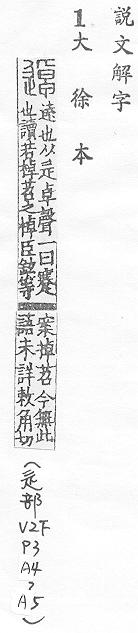 説文解字
1大徐本
遠也从辵卓聲一曰蹇
也讀若棹苕之棹臣鉉等
案棹苕今無此
語未詳敕角切
(辵部
V2F
P3
A4
?
A5)